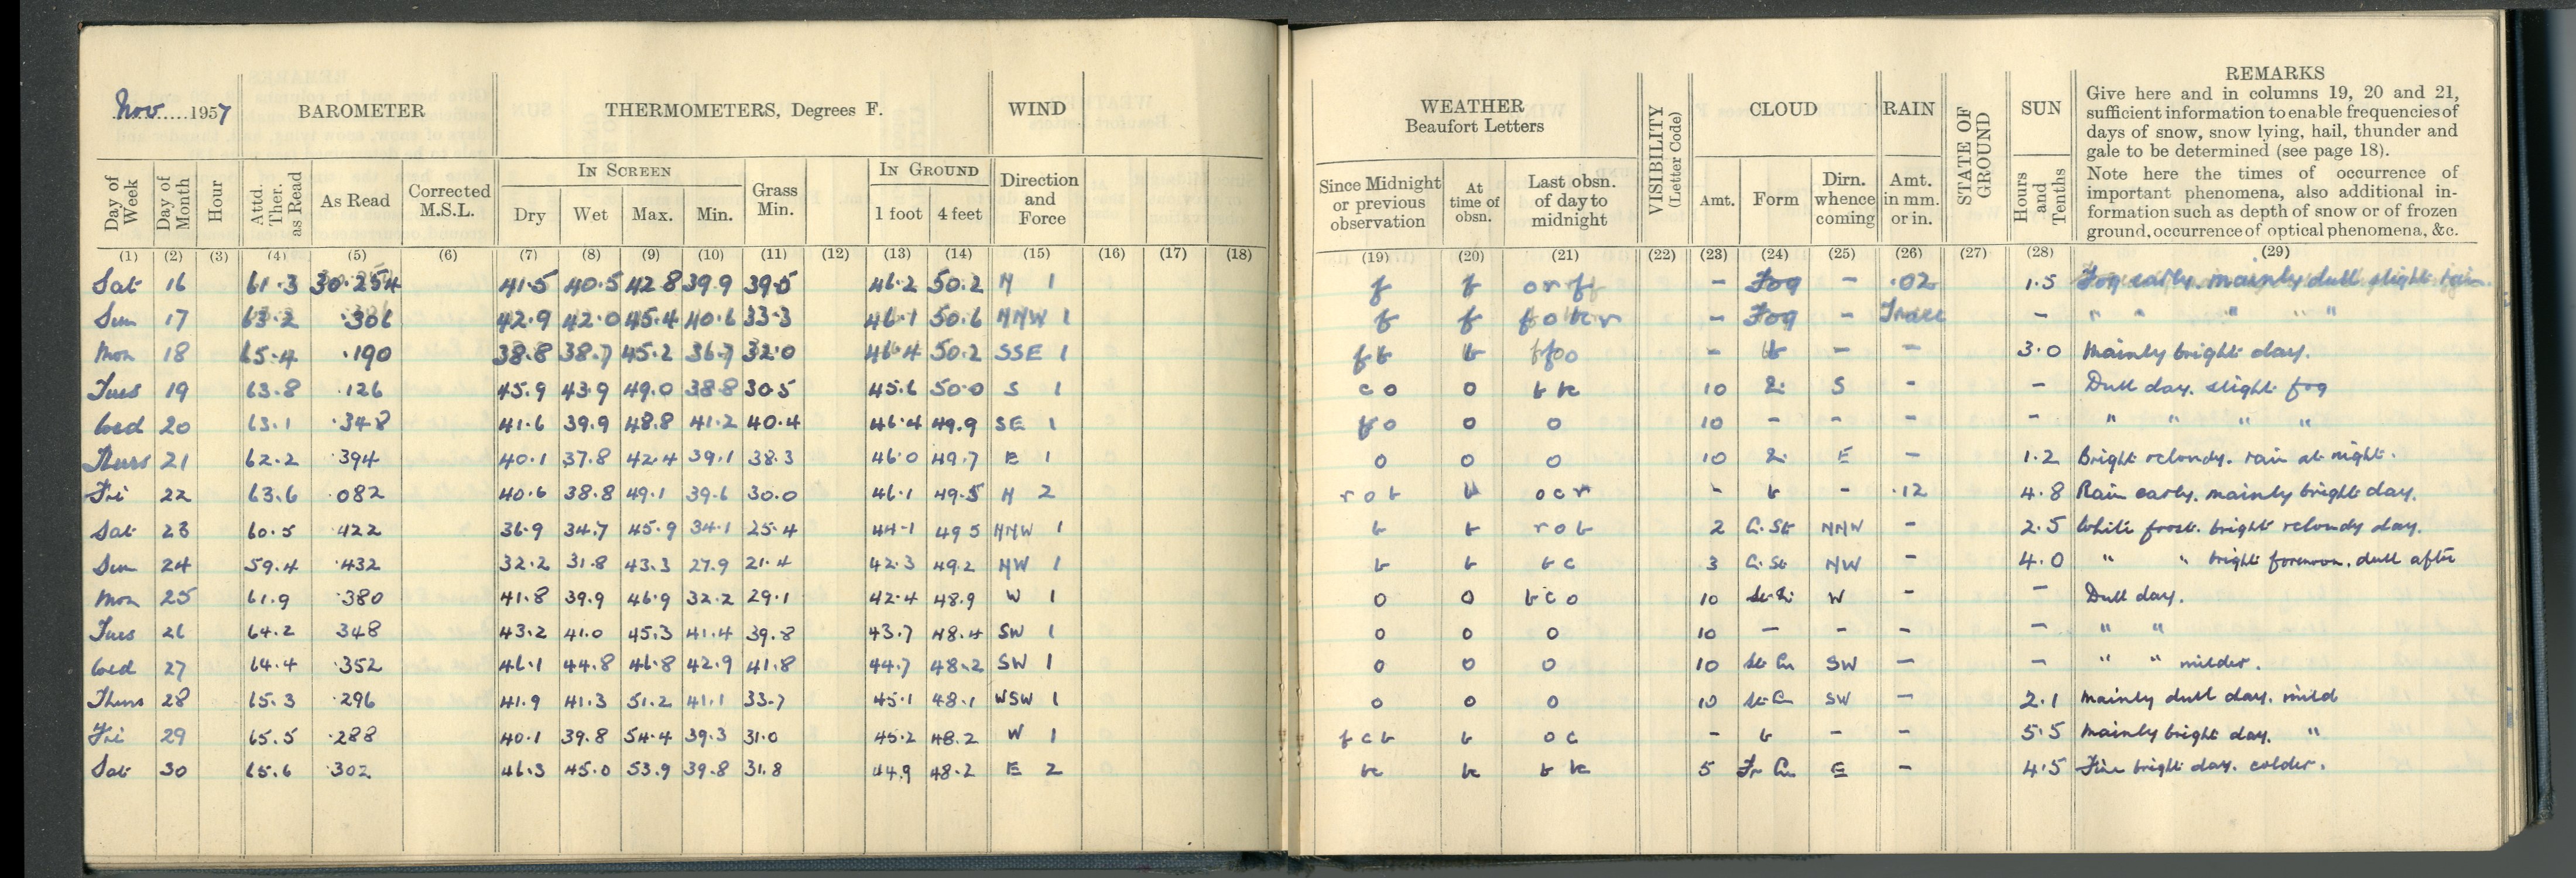 Nov. 1957 BAROMETER THERMOMETERS, Degrees F. WIND
Day of Week Day of Month Hour Attd. Ther. as Read As Read Corrected M.S.L. IN SCREEN Dry Wet Max. Min. Grass Min. IN GROUND 1 foot 4 feet Direction and Force
(1) (2) (3) (4) (5) (6) (7) (8) (9) (10) (11) (12) (13) (14) (15) (16) (17) (18)
Sat 16 61.3 30.254 41.5 40.5 42.8 39.9 39.5 46.2 50.2 N 1
Sun 17 63.2 .306 42.9 42.0 45.4 40.6 33.3 46.1 50.6 NNW 1
Mon 18 65.4 .190 38.8 38.7 45.2 36.7 32.0 46.4 50.2 SSE 1
Tues 19 63.8 .126 45.9 43.9 49.0 38.8 30.5 45.6 50.0 S 1
Wed 20 63.1 .348 41.6 39.9 48.8 41.2 40.4 46.4 49.9 SE 1
Thurs 21 62.2 .394 40.1 37.8 42.4 39.1 38.3 46.0 49.7 E 1
Fri 22 63.6 .082 40.6 38.8 49.1 39.6 30.0 46.1 49.5 N 2
Sat 23 60.5 .422 36.9 34.7 45.9 34.1 25.4 44.1 49 5 NNW 1
Sun 24 59.4 .432 32.2 31.8 43.3 27.9 21.4 42.3 49.2 NW 1
Mon 25 61.9 .380 41.8 39.9 46.9 32.2 29.1 42.4 48.9 W 1
Tues 26 64.2 348 43.2 41.0 45.3 41.4 39.8 43.7 48.4 SW 1
Wed 27 64.4 .352 46.1 44.8 46.8 42.9 41.8 44.7 48.2 SW 1
Thurs 28 65.3 .296 41.9 41.3 51.2 41.1 33.7 45.1 48.1 WSW 1
Fri 29 65.5 .288 40.1 39.8 54.4 39.3 31.0 45.2 48.2 W 1
Sat 30 65.6 .302 46.3 45.0 53.9 39.8 31.8 44.9 48.2 E 2
WEATHER Beaufort Letters VISIBILITY (Letter Code) CLOUD RAIN STATE OF GROUND SUN REMARKS
Give here and in columns 19, 20 and 21,
sufficient information to enable frequencies of
days of snow, snow lying, hail, thunder and
gale to be determined (see page 18).
Note here the times of occurrence of
important phenomena, also additional in-
formation such as depth of snow or of frozen
ground, occurrence of optical phenomena, &c.
Since Midnight or previous observation At time of obsn. Last obsn. of day to midnight Amt. Form Dirn. whence coming Amt. in mm. or in. Hours and Tenths
(19) (20) (21) (22) (23) (24) (25) (26) (27) (28) (29)
f f o r f - Fog - .02 1.5 Fog early. mainly dull slight rain.
f f f o bc r - Fog - Trace - " " " " "
f b b f f o o - b - - 3.0 Mainly bright day.
c o o b bc 10 S - - Dull day. slight fog
f o o o 10 - - - - " " " "
o o o 10 E - 1.2 Bright & cloudy. rain at night.
r o b b o c r - b - .12 4.8 Rain early. mainly bright day.
b b r o b 2 C. St NNW - 2.5 White frost. bright & cloudy day.
b b b c 3 C. St NW - 4.0 " " bright forenoon. dull after
o o b c o 10 W - - Dull day.
o o o 10 - - - - " "
o o o 10 St Cu SW - - " " milder.
o o o 10 St Cu SW - 2.1 Mainly dull day. mild
f c b b o c - b - - 5.5 Mainly bright day. "
bc bc b bc 5 Fr Cu E - 4.5 Fine bright day. colder.